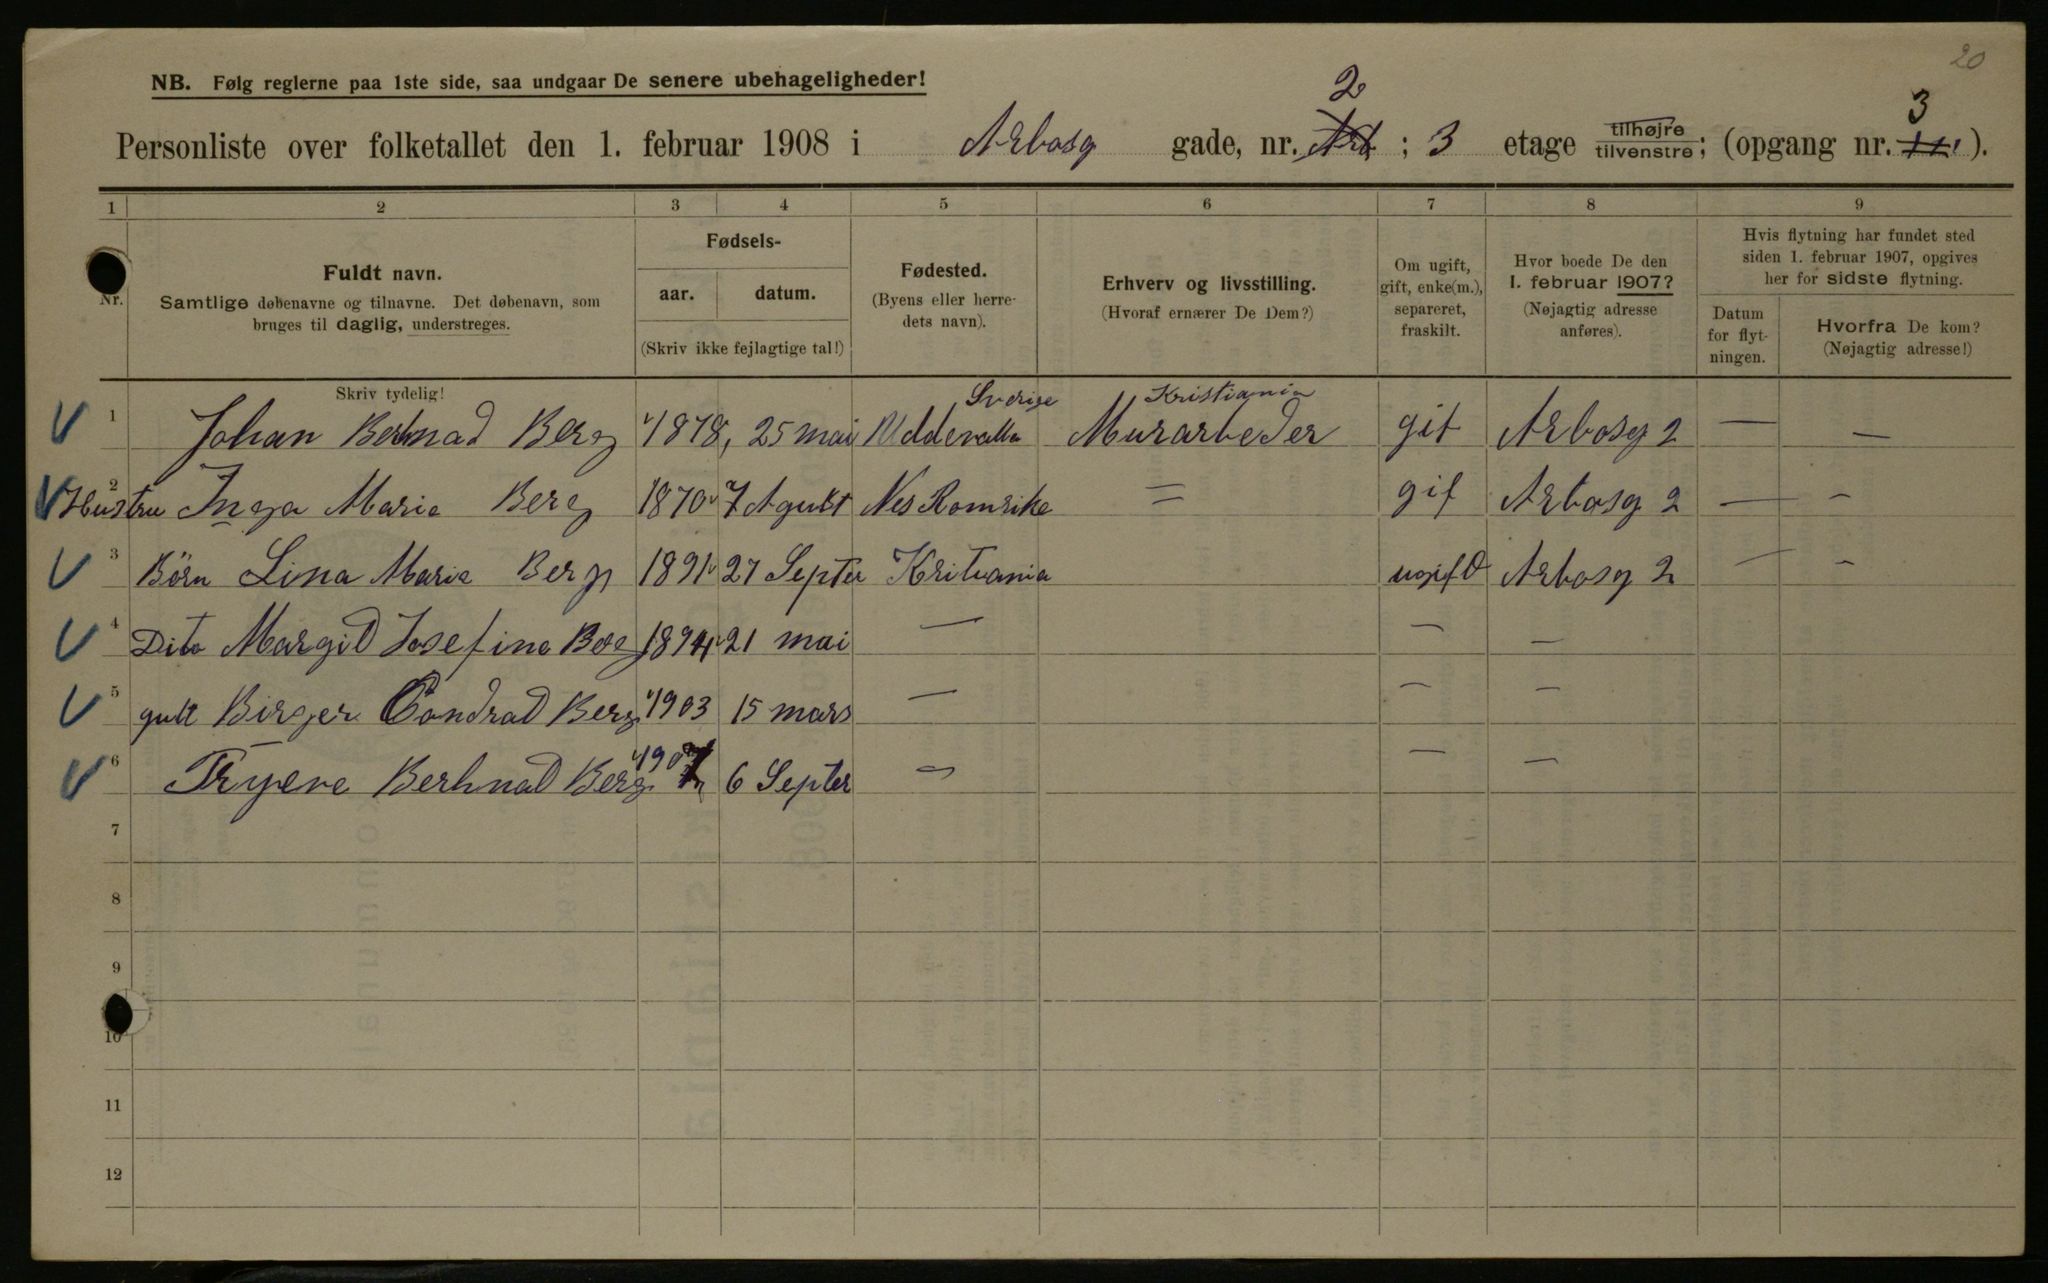 20
NB. Følg reglerne paa 1ste side, saa undgaar De senere ubehageligheder!
Personliste over folketallet den 1. februar 1908 i Arbosg gade, nr. 2; 3 etage tilhøjre tilvenstre; (opgang nr. 3).
1 2 3 4 5 6 7 8 9
Nr.
Fuldt navn.
Samtlige døbenavne og tilnavne. Det døbenavn, som
bruges til daglig, understreges.
Fødsels-
aar. datum.
(Skriv ikke fejlagtige tal!)
Fødested.
(Byens eller herre-
dets navn).
Erhverv og livsstilling.
(Hvoraf ernærer De Dem?)
Om ugift,
gift, enke(m.),
separeret,
fraskilt.
Hvor boede De den
1. februar 1907?
(Nøjagtig adresse
anføres).
Hvis flytning har fundet sted
siden 1. februar 1907, opgives
her for sidste flytning.
Datum
for flyt-
ningen.
Hvorfra De kom?
(Nøjagtig adresse!)
Skriv tydelig!
Sverige Kristiania
1 Johan Berhnad Berg 1878, 25 mai Uddevalla Murarbeder gift Arbosg 2 — —
2 Hustru Inga Marie Berg 1870 7 Agust Nes Romrike = gif Arbosg 2 — –
3 Börn Lina Marie Berg 1891 27 Septer Kritiania ugift Arbosg 2 – –
4 Dito Margit Josefine Berg 1894 21 mai — – –
5 gutt Birger Condrad Berg 1903 15 mars — – –
6 Tryeve Berhnad Berg 1907 6 Septer – – –
7
8
9
10
11
12